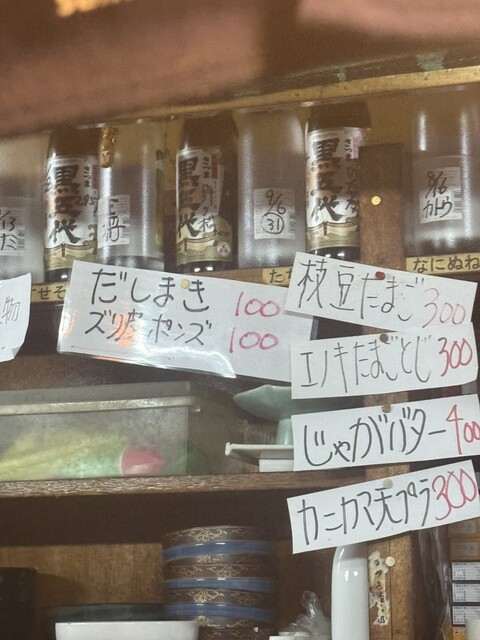 さつま
黒五代
さつま
黒五代
9/6
㉛
さつま
黒五代
9/6
カトウ
せそ
たち
なにぬね
物
だしまき 100
100
枝豆たまご 300
エノキたまごとじ 300
じゃがバター 400
カニカマ天プラ 300